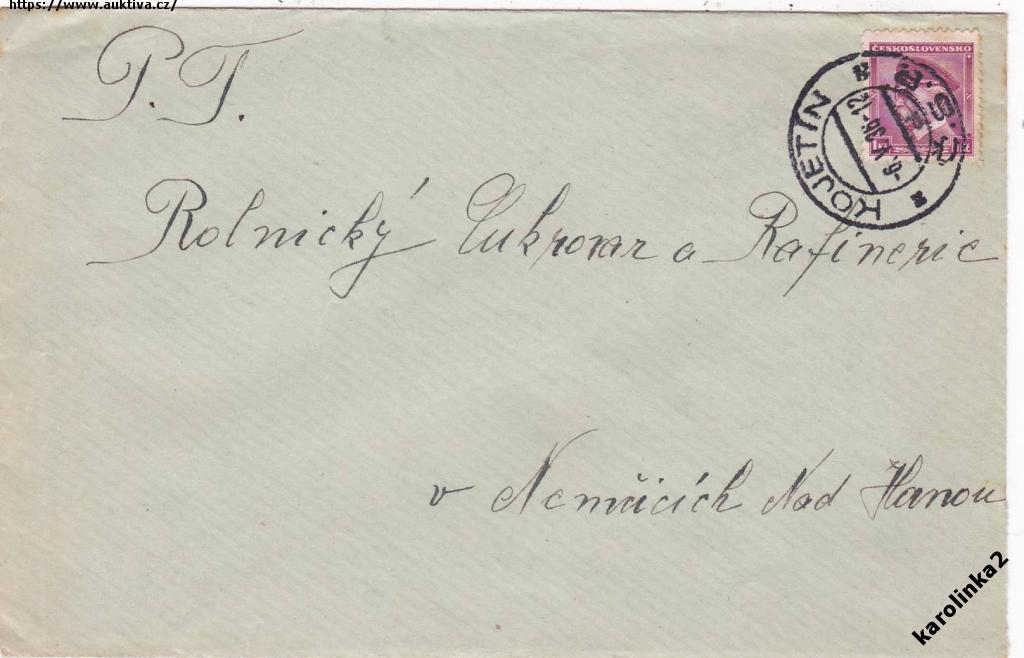 https://www.auktiva.cz/
P. T.
ČESKOSLOVENSKO
KOJETÍN
Č.S.R.
-9.V.36-12
Rolnický Cukrovar a Rafinerie
v Nemčicích Nad Hanou
karolinka2